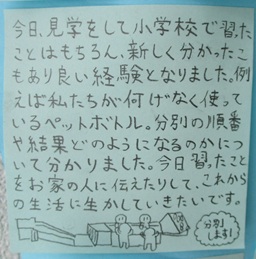 今日、見学をして小学校で習った
ことはもちろん、新しく分かったこ
ともあり良い経験となりました。例
えば私たちが何げなく使って
いるペットボトル。分別の順番
や結果どのようになるのかにつ
いて分かりました。今日習ったこと
をお家の人に伝えたりして、これから
の生活に生かしていきたいです。
分別
します!